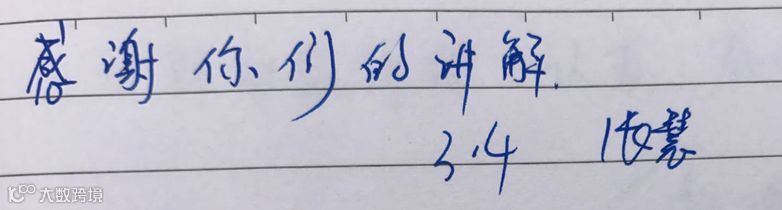 感谢你们的讲解.
3.4 张慧
大数跨境